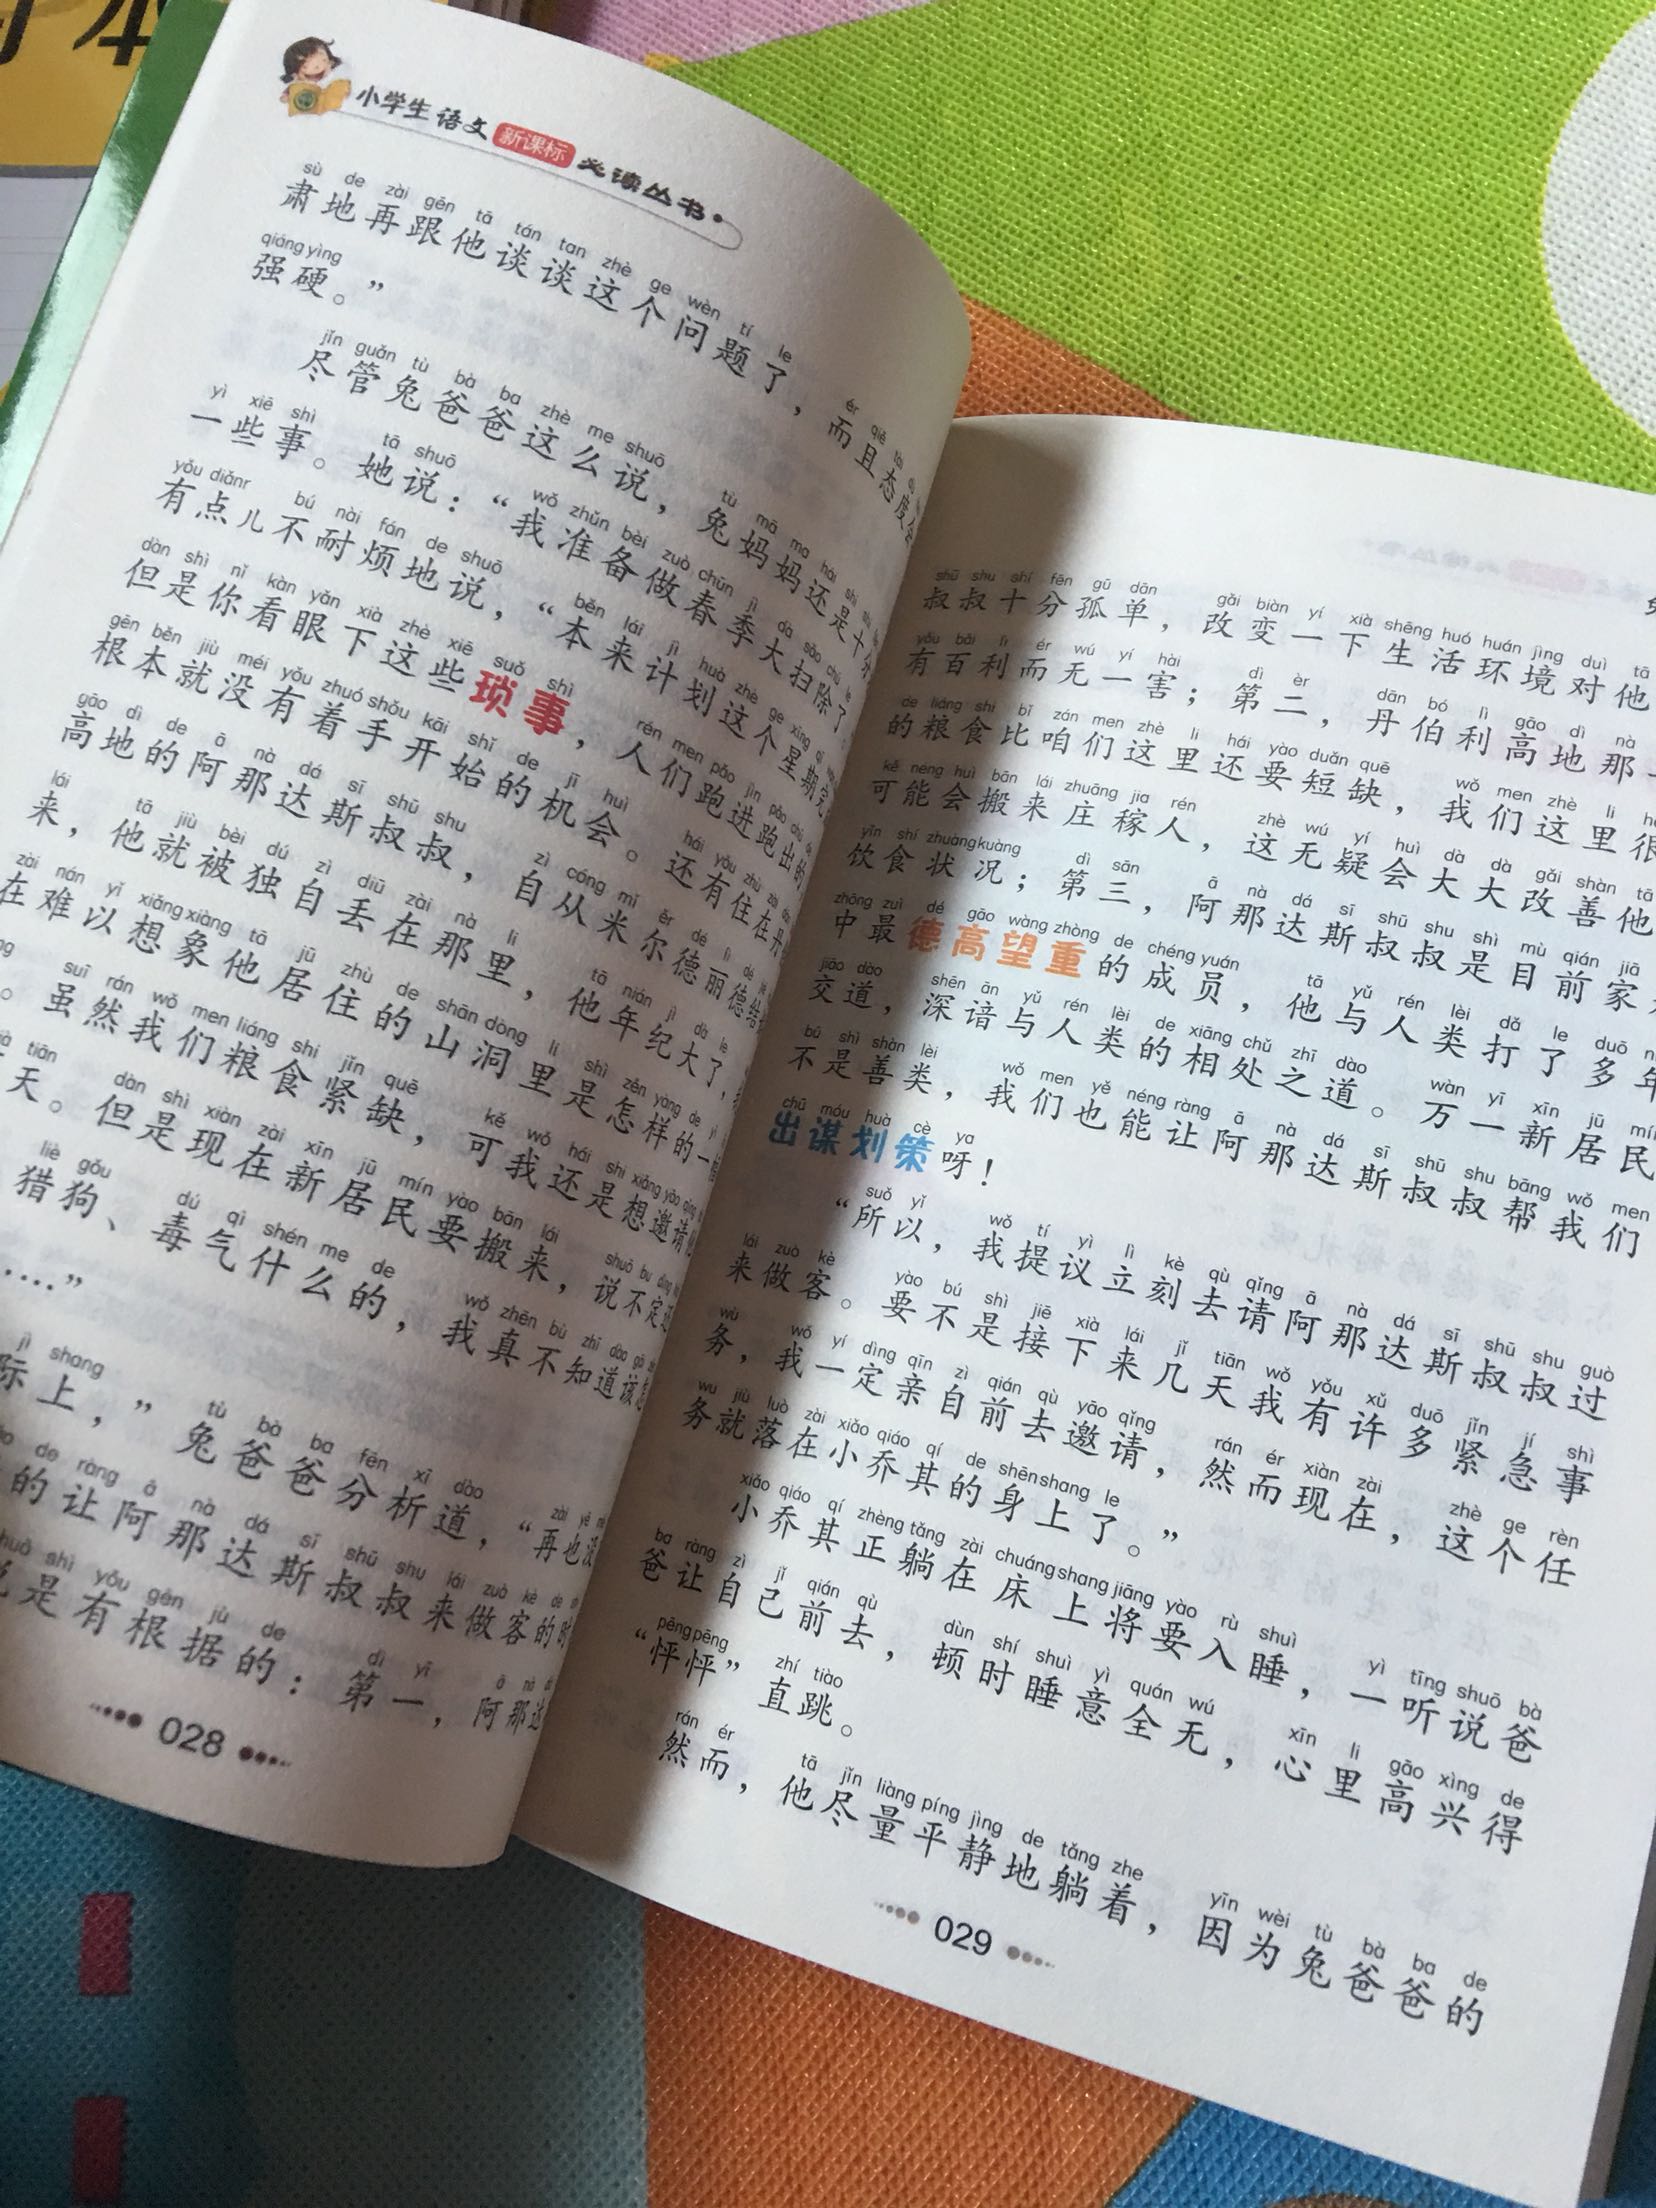 本
小学生语文新课标必读丛书
肃地再跟他谈谈这个问题了，而且态度会
强硬。”
尽管兔爸爸这么说，兔妈妈还是十分
一些事。她说：“我准备做春季大扫除了
有点儿不耐烦地说，“本来计划这个星期完
但是你看眼下这些琐事，人们跑进跑出的
根本就没有着手开始的机会。还有住在丹
高地的阿那达斯叔叔，自从米尔德丽德结
来，他就被独自丢在那里，他年纪大了，
在难以想象他居住的山洞里是怎样的一
。虽然我们粮食紧缺，可我还是想邀请他
天。但是现在新居民要搬来，说不定还
猎狗、毒气什么的，我真不知道该怎
……”
际上，”兔爸爸分析道，“再也没
的让阿那达斯叔叔来做客的时
说是有根据的：第一，阿那达
028
叔叔十分孤单，改变一下生活环境对他
有百利而无一害；第二，丹伯利高地那
的粮食比咱们这里还要短缺，我们这里很
可能会搬来庄稼人，这无疑会大大改善他
饮食状况；第三，阿那达斯叔叔是目前家
中最德高望重的成员，他与人类打了多年
交道，深谙与人类的相处之道。万一新居民
不是善类，我们也能让阿那达斯叔叔帮我们
出谋划策呀！
“所以，我提议立刻去请阿那达斯叔叔过
来做客。要不是接下来几天我有许多紧急事
务，我一定亲自前去邀请，然而现在，这个任
务就落在小乔其的身上了。”
小乔其正躺在床上将要入睡，一听说爸
爸让自己前去，顿时睡意全无，心里高兴得
“怦怦”直跳。
然而，他尽量平静地躺着，因为兔爸爸的
029